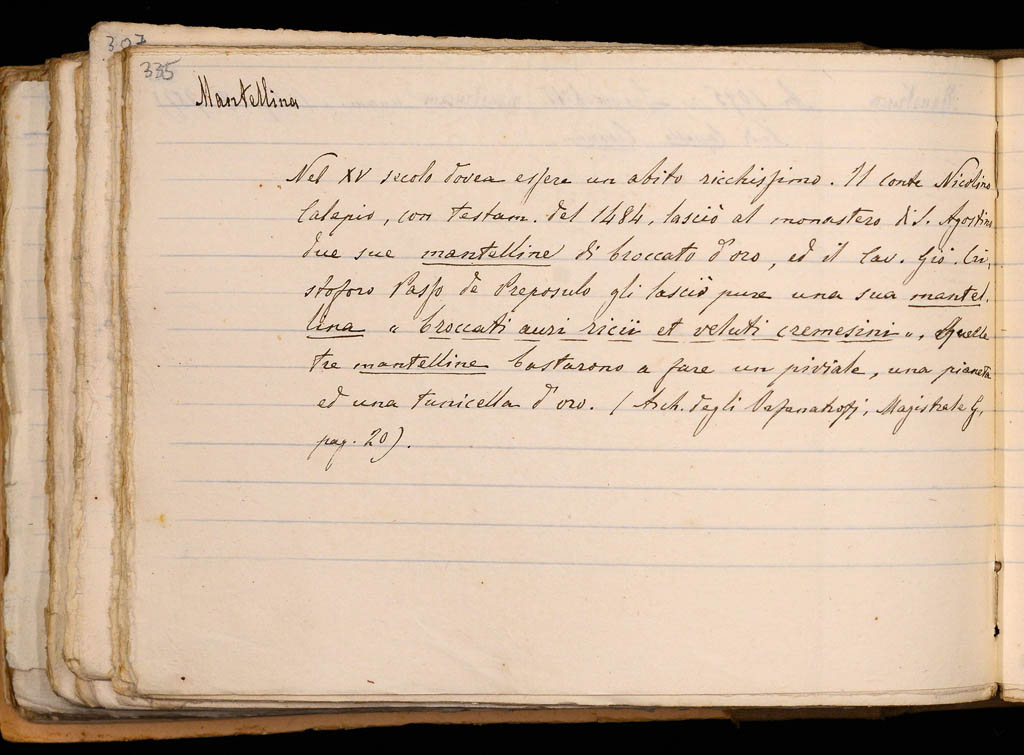 307
335
Mantellina
Nel XV secolo dovea essere un abito ricchissimo. Il conte Nicolino
Calepio, con testam. del 1484, lasciò al monastero di S. Agostino
due sue mantelline di broccato d'oro, ed il Cav. Gio. Cri,
stoforo Passo de Preposulo gli lasciò pure una sua mantel.
lina " broccati auri ricii et veluti cremesini ". Quelle
tre mantelline bastarono a fare un piviale, una pianeta
ed una tunicella d'oro. (Arch. degli Orfanatrofj, Magistrale G,
pag. 20).